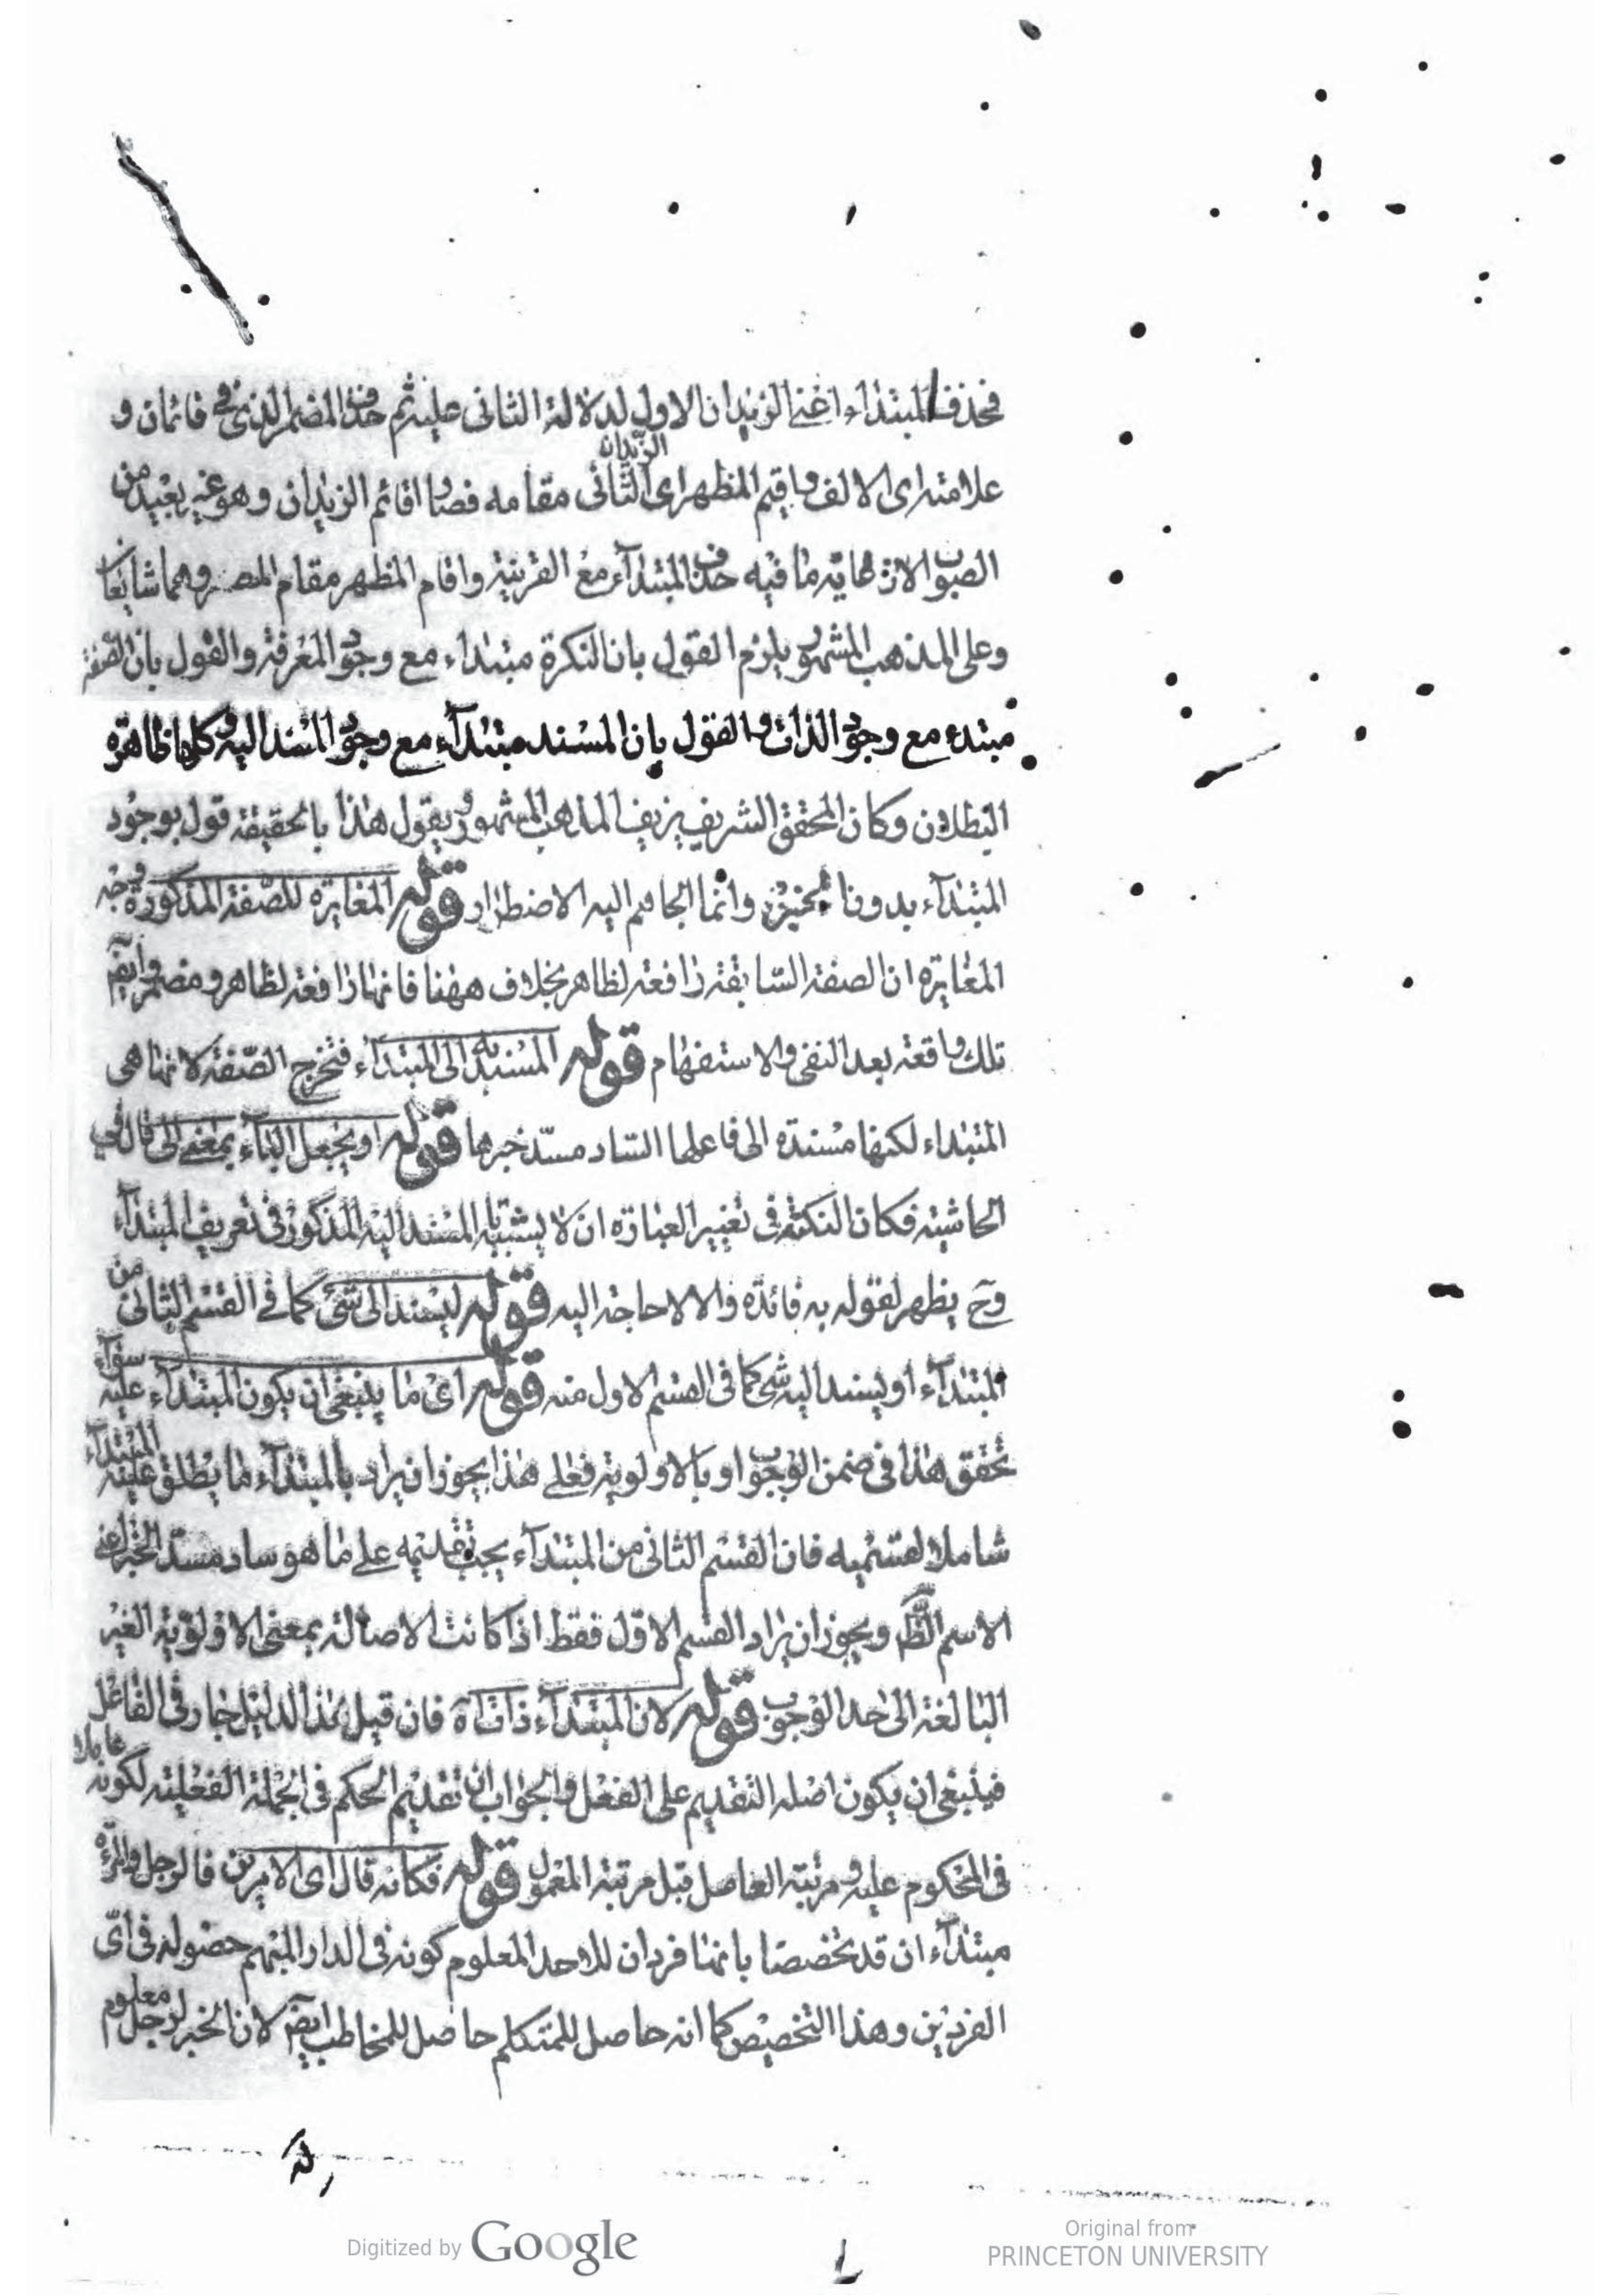 فحذف المبتداء اعنى الزيدان الاول لدلالة الثانى عليه ثم حذف المضمر الذى فى قائمان و
علامته اى الالف واقيم المظهر اى الزيدان الثانى مقامه فصار اقائم الزيدان وهو غير بعيد من
الصواب لان غاية ما فيه حذف المبتدآء مع القرينة واقام المظهر مقام المضمر وهما شايعان
وعلى المذهب المشهور يلزم القول بان النكرة مبتداء مع وجود المعرفة والقول بان الصفة
مبتدء مع وجود الذات والقول بان المسند مبتدآء مع وجود المسند اليه وكلها ظاهرة
البطلان وكان المحقق الشريف يزيف المذهب المشهور بقول هذا بالحقيقة قول بوجود
المبتدآء بدون الخبر وانما الجاهم اليه الاضطرار قوله المغايرة للصفة المذكورة وجه
المغايرة ان الصفة السابقة رافعة لظاهر بخلاف ههنا فانها رافعة لظاهر ومضمر وايضا
تلك واقعة بعد النفى والاستفهام قوله المسند به الى المبتدآء فتخرج الصفة لانها هى
المبتداء لكنها مسندة الى فاعلها الساد مسد خبرها قوله او يجعل البآء بمعنى الى قال فى
الحاشية فكان النكتة فى تغيير العبارة ان لا يشتبه بالمسند اليه المذكور فى تعريف المبتدآء
وح يظهر لقوله به فائدة والا لا حاجة اليه قوله ليسند الى شئ كما فى القسم الثانى من
المبتدآء او يسند اليه شئ كما فى القسم الاول منه قوله اى ما ينبغى ان يكون المبتدآء عليه سوآء
تحقق هذا فى ضمن الوجوب او بالاولوية فعلى هذا يجوز ان يراد بالمبتدآء ما يطلق عليه المبتدآء
شاملا لقسميه فان القسم الثانى من المبتدآء يجب تقديمه على ما هو ساد مسد الخبر اعنى
الاسم الظ ويجوز ان يراد القسم الاول فقط اذا كانت الاصالة بمعنى الاولوية الغير
البالغة الى حد الوجوب قوله لان المبتدآء ذات آه فان قيل هذا الدليل جار فى الفاعل
فينبغى ان يكون اصله التقديم على الفعل والجواب ان تقديم الحكم فى الجملة الفعلية لكونه عاملا
فى المحكوم عليه ومرتبة العامل قبل مرتبة المعمول قوله فكانه قال اى الامرين فالرجل والمرءة
مبتدآء ان قد تخصصا بانهما فردان للاحد المعلوم كونه فى الدار المبهم حضوله فى اى
الفردين وهذا التخصيص كما انه حاصل للمتكلم حاصل للمخاطب ايضا لان الخبر لرجل معلوم
Digitized by Google
Original from
PRINCETON UNIVERSITY